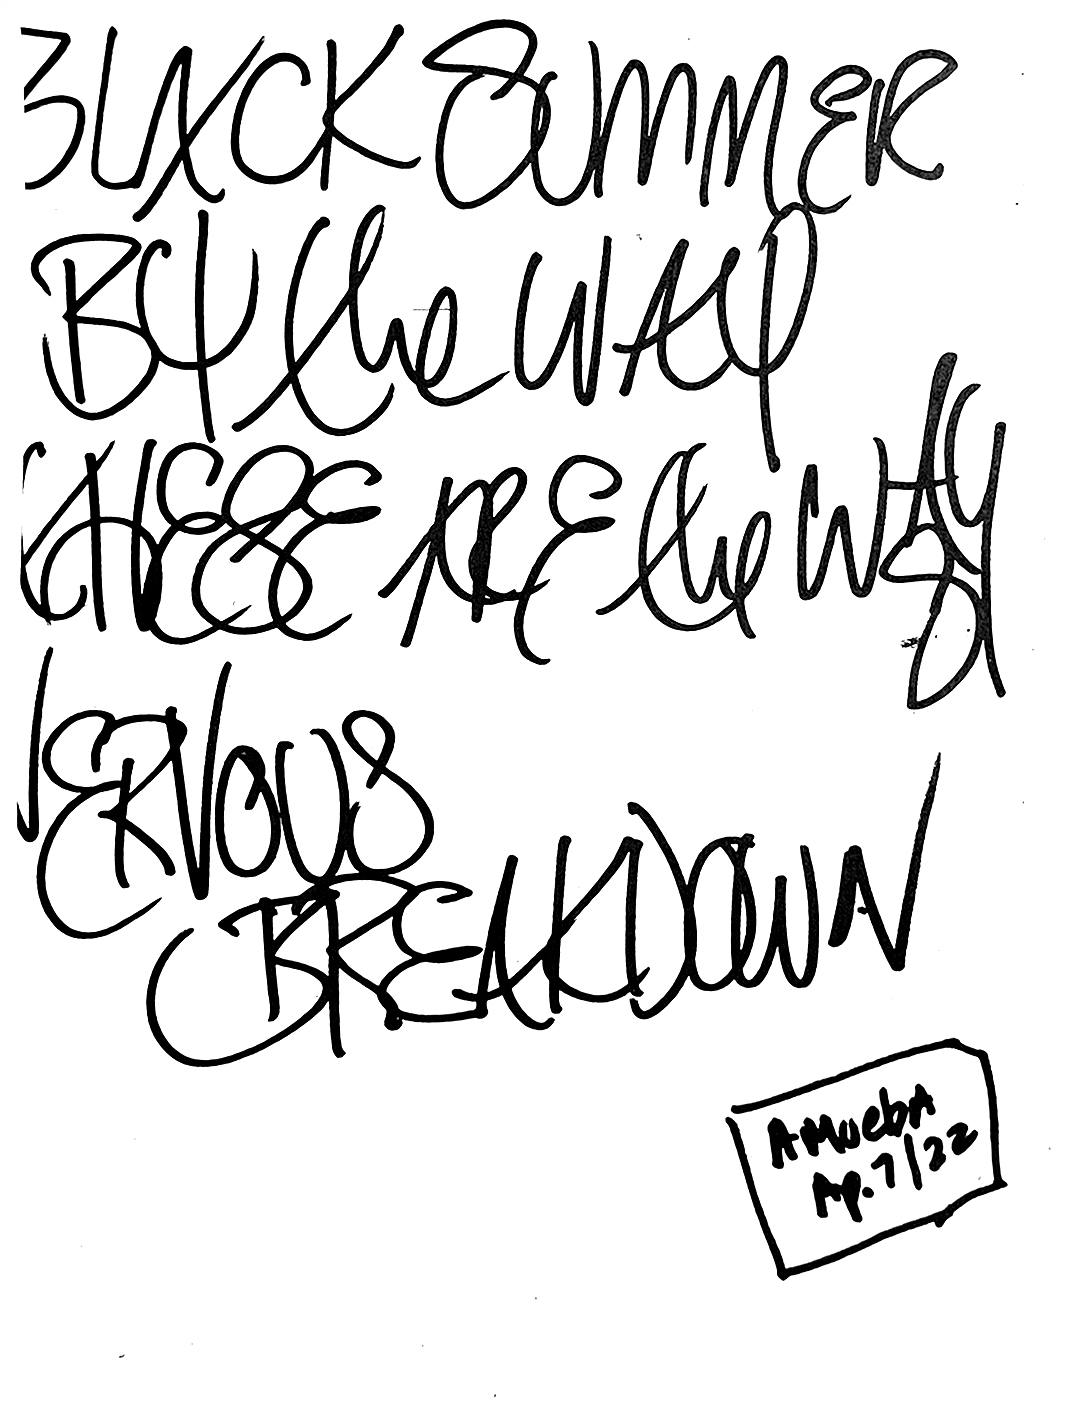 BLACK SUMMER
BY the WAY
THESE ARE the WAYS
NERVOUS
BREAKDOWN
AMUEbA
Ap.7/22